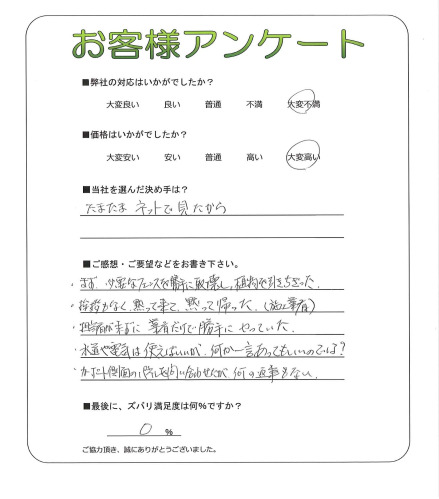 お客様アンケート
■弊社の対応はいかがでしたか？
大変良い 良い 普通 不満 大変不満
■価格はいかがでしたか？
大変安い 安い 普通 高い 大変高い
■当社を選んだ決め手は？
たまたま ネットで見たから
■ご感想・ご要望などをお書き下さい。
・まず、必要なフェンスを勝手に取壊し、植物を引きちぎった。
・挨拶もなく、黙って来て、黙って帰った。(施工業者)
・担当者が来ずに 業者だけで勝手に やっていた。
・水道や電気は使えばいいが、何か一言あってもいいのでは？
・カーポート側面の を問い合わせたが、何の返事もない。
■最後に、ズバリ満足度は何％ですか？
0 ％
ご協力頂き、誠にありがとうございました。